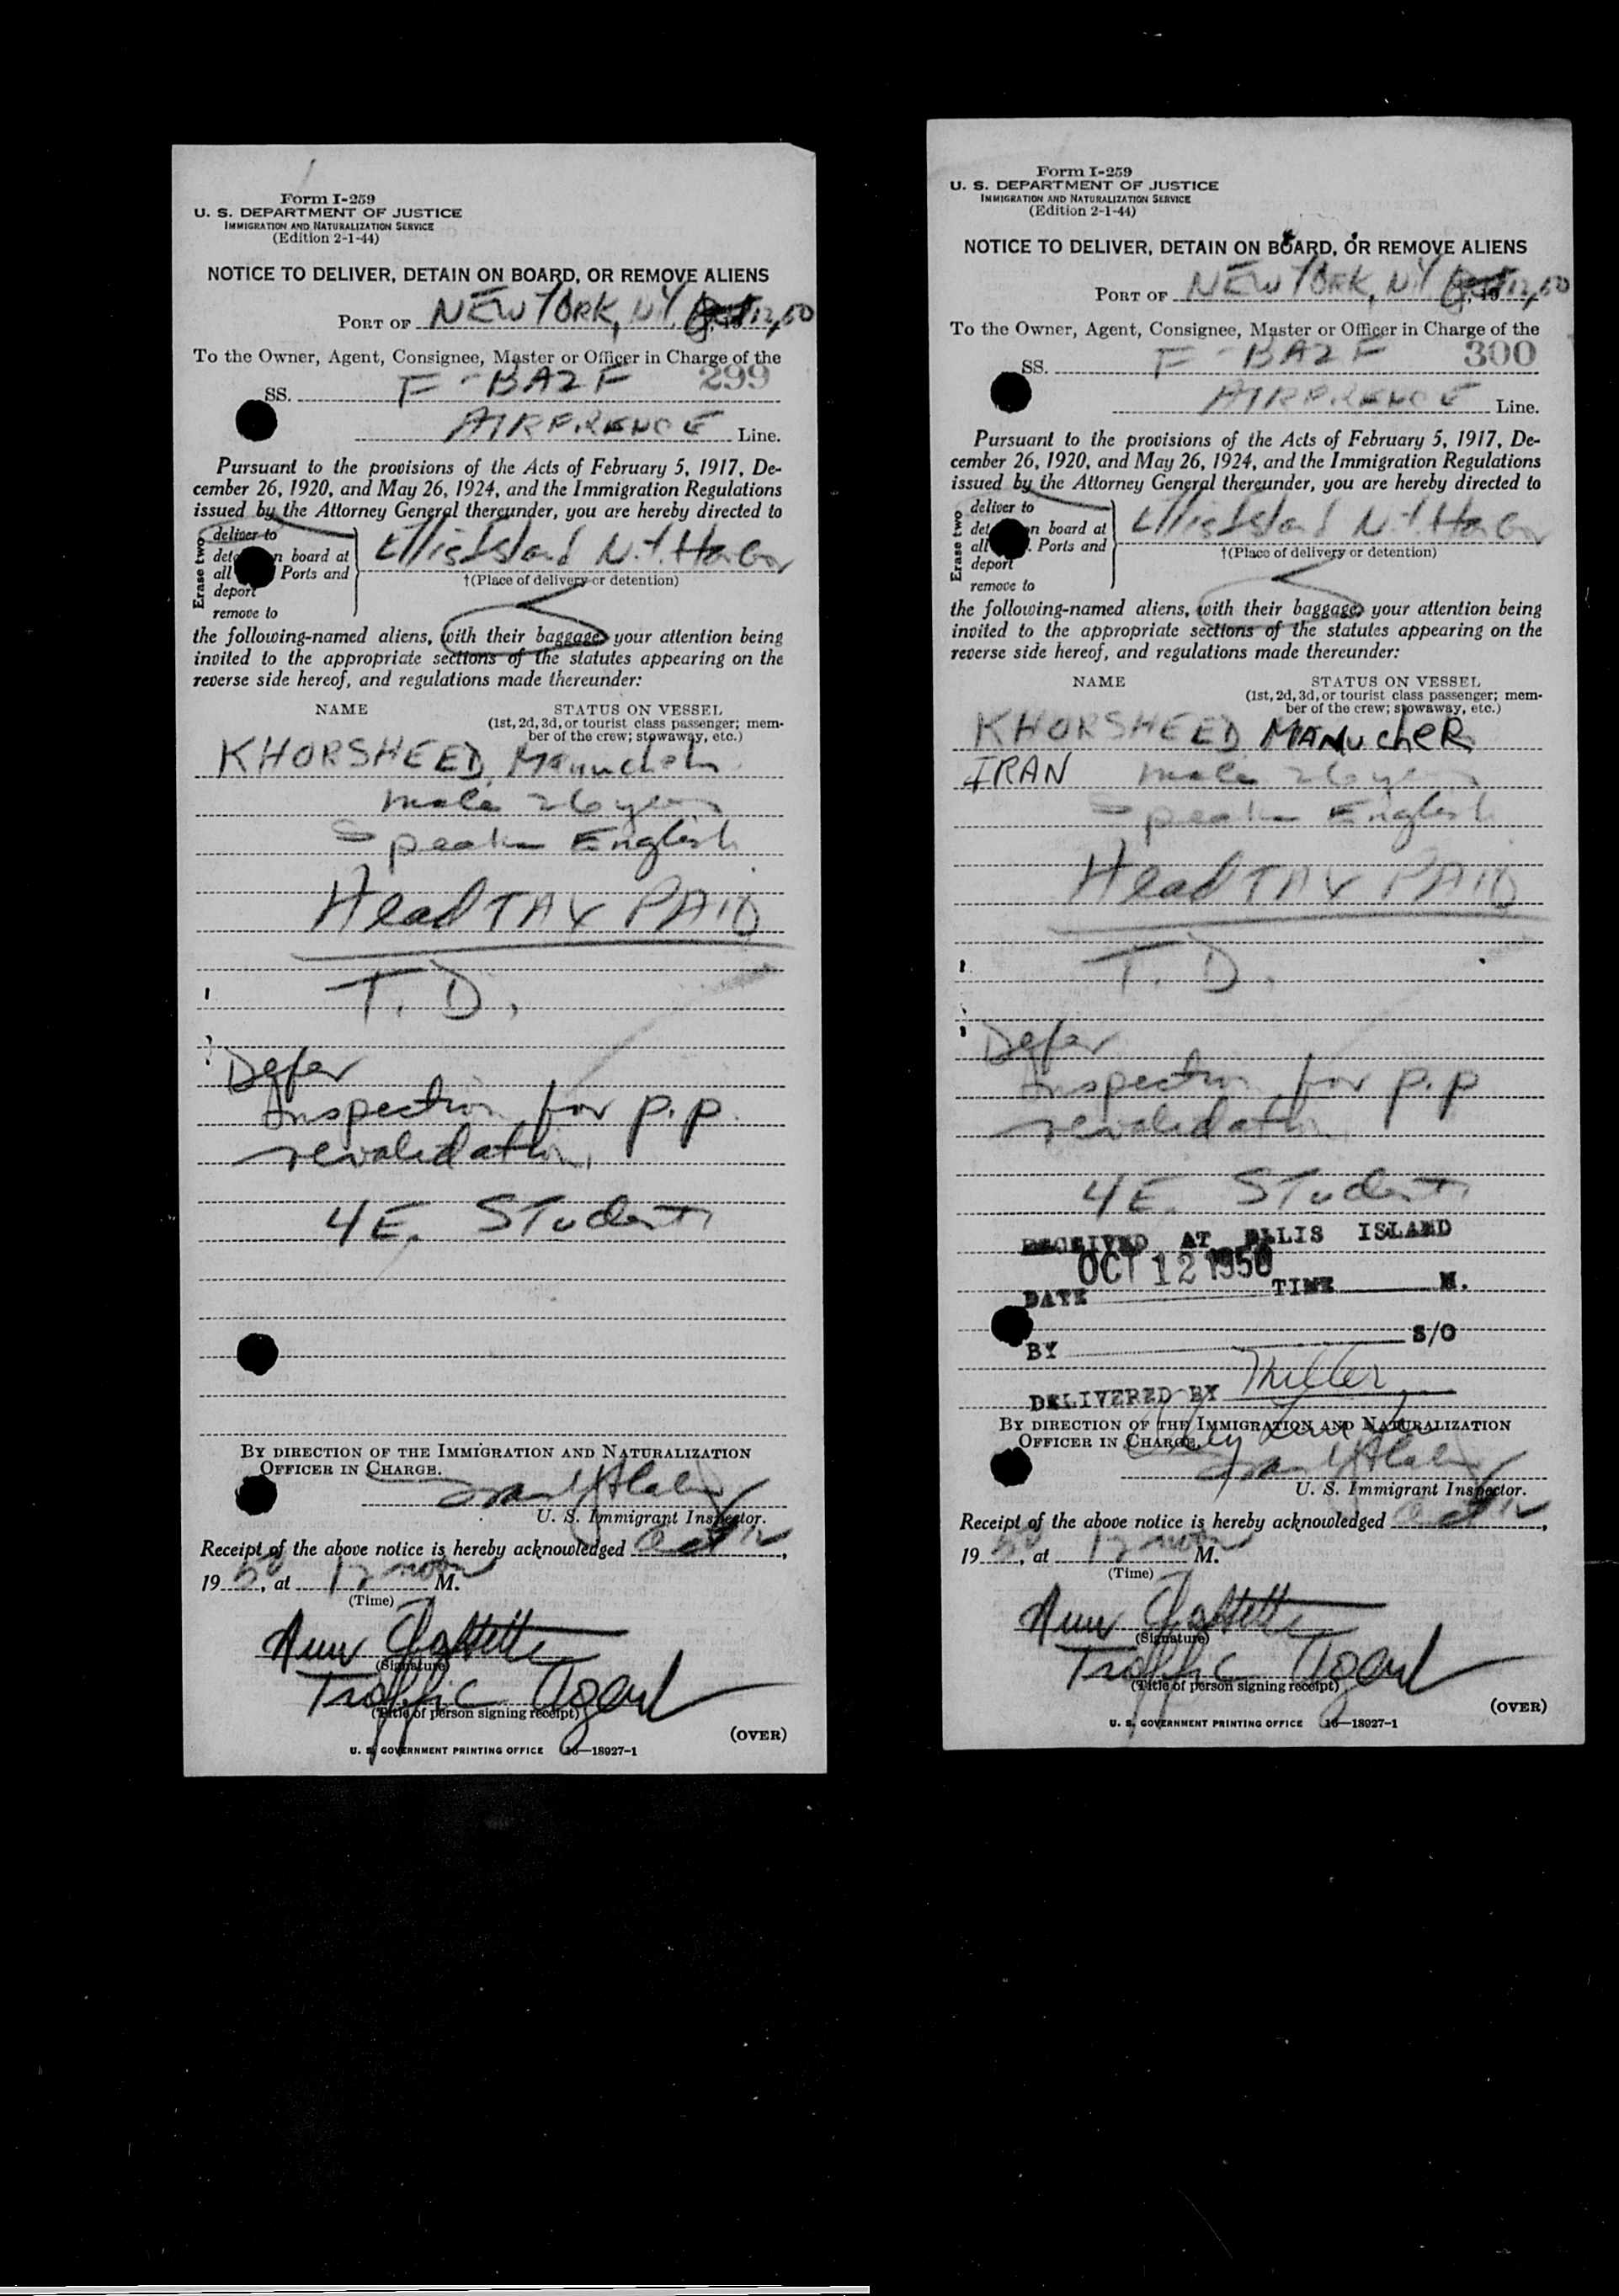 Form I-259
U. S. DEPARTMENT OF JUSTICE
IMMIGRATION AND NATURALIZATION SERVICE
(Edition 2-1-44)
NOTICE TO DELIVER, DETAIN ON BOARD, OR REMOVE ALIENS
PORT OF NEW YORK, NY Oct 12, 50
To the Owner, Agent, Consignee, Master or Officer in Charge of the
299
SS. F-BAZF
AIRFRANCE Line.
Pursuant to the provisions of the Acts of February 5, 1917, De-
cember 26, 1920, and May 26, 1924, and the Immigration Regulations
issued by the Attorney General thereunder, you are hereby directed to
Erase two
deliver to
on board at
all Ports and
deport
remove to
Ellis Island N.Y. Harbor
†(Place of delivery or detention)
the following-named aliens, with their baggage, your attention being
invited to the appropriate sections of the statutes appearing on the
reverse side hereof, and regulations made thereunder:
NAME STATUS ON VESSEL
(1st, 2d, 3d, or tourist class passenger; mem-
ber of the crew; stowaway, etc.)
KHORSHEED, Manucheh
male 26 years
Speaks English
Head TAX PAID
T. D.
Defer
Inspection for p.p.
revalidation
4E. Student
BY DIRECTION OF THE IMMIGRATION AND NATURALIZATION
OFFICER IN CHARGE.
U. S. Immigrant Inspector.
Receipt of the above notice is hereby acknowledged Oct 12,
19 50, at 12 noon M.
(Time)
Ann
(Signature)
Traffic Agent
(Title of person signing receipt)
(OVER)
U. S. GOVERNMENT PRINTING OFFICE 16—18927-1
Form I-259
U. S. DEPARTMENT OF JUSTICE
IMMIGRATION AND NATURALIZATION SERVICE
(Edition 2-1-44)
NOTICE TO DELIVER, DETAIN ON BOARD, OR REMOVE ALIENS
PORT OF NEW YORK, NY Oct 12, 50
To the Owner, Agent, Consignee, Master or Officer in Charge of the
300
SS. F-BAZF
AIRFRANCE Line.
Pursuant to the provisions of the Acts of February 5, 1917, De-
cember 26, 1920, and May 26, 1924, and the Immigration Regulations
issued by the Attorney General thereunder, you are hereby directed to
Erase two
deliver to
on board at
all Ports and
deport
remove to
Ellis Island N.Y. Harbor
†(Place of delivery or detention)
the following-named aliens, with their baggage, your attention being
invited to the appropriate sections of the statutes appearing on the
reverse side hereof, and regulations made thereunder:
NAME STATUS ON VESSEL
(1st, 2d, 3d, or tourist class passenger; mem-
ber of the crew; stowaway, etc.)
KHORSHEED, MANUcheR
IRAN male 26 years
Speaks English
Head TAX PAID
T. D.
Defer
Inspection for p.p
revalidation
4E. Student
RECEIVED AT ELLIS ISLAND
OCT 12 1950
DATE TIME M.
BY S/O
DELIVERED BY Miller
BY DIRECTION OF THE IMMIGRATION AND NATURALIZATION
OFFICER IN CHARGE.
U. S. Immigrant Inspector.
Receipt of the above notice is hereby acknowledged Oct 12,
19 50, at 12 noon M.
(Time)
Ann
(Signature)
Traffic Agent
(Title of person signing receipt)
(OVER)
U. S. GOVERNMENT PRINTING OFFICE 16—18927-1